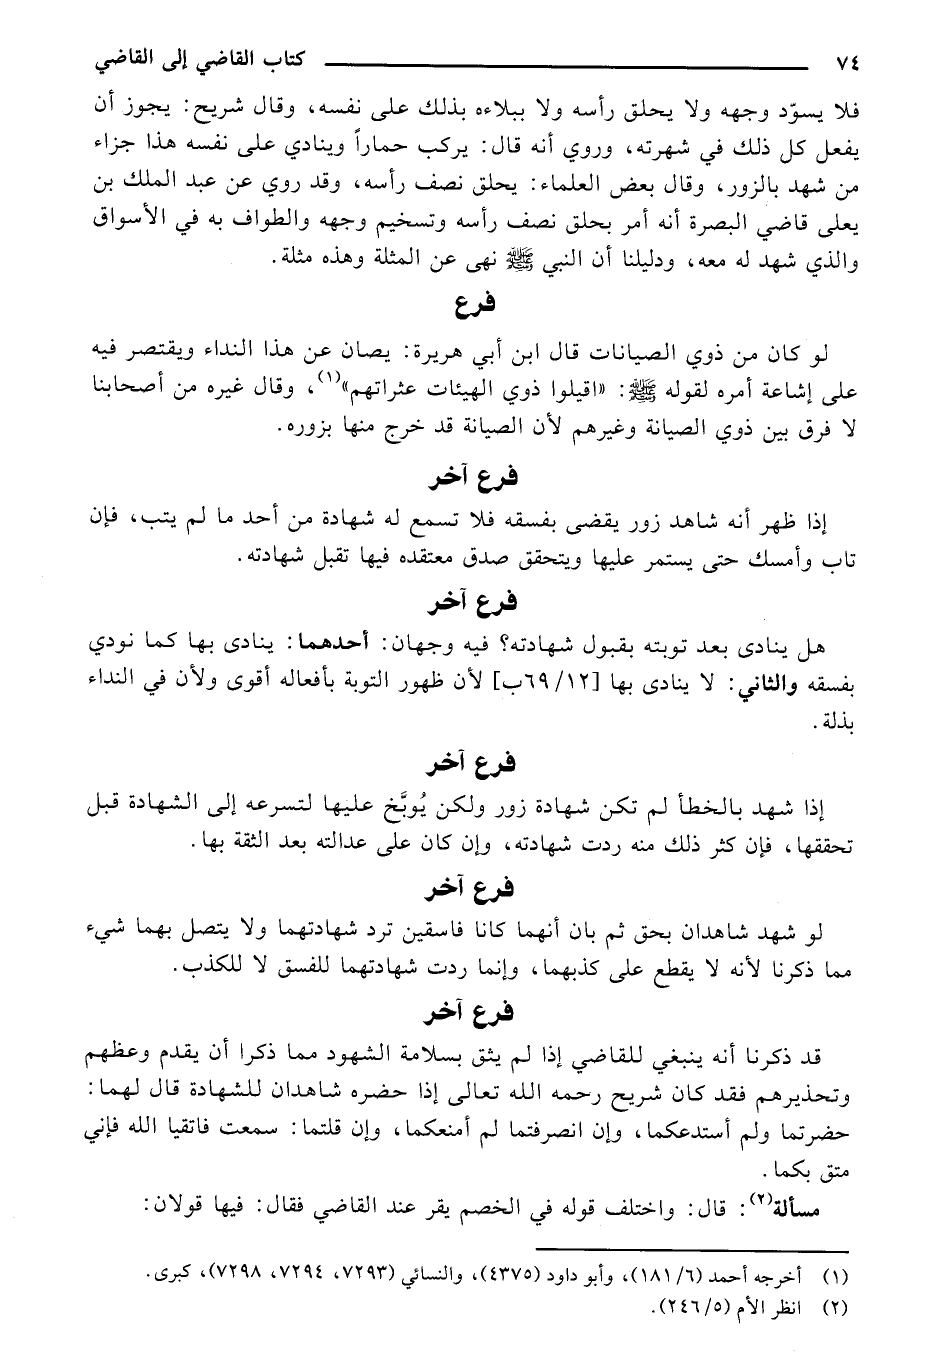 ٧٤ كتاب القاضي إلى القاضي
فلا يسوّد وجهه ولا يحلق رأسه ولا ببلاءه بذلك على نفسه، وقال شريح: يجوز أن
يفعل كل ذلك في شهرته، وروي أنه قال: يركب حماراً وينادي على نفسه هذا جزاء
من شهد بالزور، وقال بعض العلماء: يحلق نصف رأسه، وقد روي عن عبد الملك بن
يعلى قاضي البصرة أنه أمر بحلق نصف رأسه وتسخيم وجهه والطواف به في الأسواق
والذي شهد له معه، ودليلنا أن النبي ﷺ نهى عن المثلة وهذه مثلة.
فرع
لو كان من ذوي الصيانات قال ابن أبي هريرة: يصان عن هذا النداء ويقتصر فيه
على إشاعة أمره لقوله ﷺ: «اقيلوا ذوي الهيئات عثراتهم»(١)، وقال غيره من أصحابنا
لا فرق بين ذوي الصيانة وغيرهم لأن الصيانة قد خرج منها بزوره.
فرع آخر
إذا ظهر أنه شاهد زور يقضى بفسقه فلا تسمع له شهادة من أحد ما لم يتب، فإن
تاب وأمسك حتى يستمر عليها ويتحقق صدق معتقده فيها تقبل شهادته.
فرع آخر
هل ينادى بعد توبته بقبول شهادته؟ فيه وجهان: أحدهما: ينادى بها كما نودي
بفسقه والثاني: لا ينادى بها [١٢/ ٦٩ب] لأن ظهور التوبة بأفعاله أقوى ولأن في النداء
بذلة.
فرع آخر
إذا شهد بالخطأ لم تكن شهادة زور ولكن يُوبَّخ عليها لتسرعه إلى الشهادة قبل
تحققها، فإن كثر ذلك منه ردت شهادته، وإن كان على عدالته بعد الثقة بها.
فرع آخر
لو شهد شاهدان بحق ثم بان أنهما كانا فاسقين ترد شهادتهما ولا يتصل بهما شيء
مما ذكرنا لأنه لا يقطع على كذبهما، وإنما ردت شهادتهما للفسق لا للكذب.
فرع آخر
قد ذكرنا أنه ينبغي للقاضي إذا لم يثق بسلامة الشهود مما ذكرا أن يقدم وعظهم
وتحذيرهم فقد كان شريح رحمه الله تعالى إذا حضره شاهدان للشهادة قال لهما:
حضرتما ولم أستدعكما، وإن انصرفتما لم أمنعكما، وإن قلتما: سمعت فاتقيا الله فإني
متق بكما.
مسألة(٢): قال: واختلف قوله في الخصم يقر عند القاضي فقال: فيها قولان:
(١) أخرجه أحمد (٦/ ١٨١)، وأبو داود (٤٣٧٥)، والنسائي (٧٢٩٣، ٧٢٩٤، ٧٢٩٨)، كبرى.
(٢) انظر الأم (٥/ ٢٤٦).